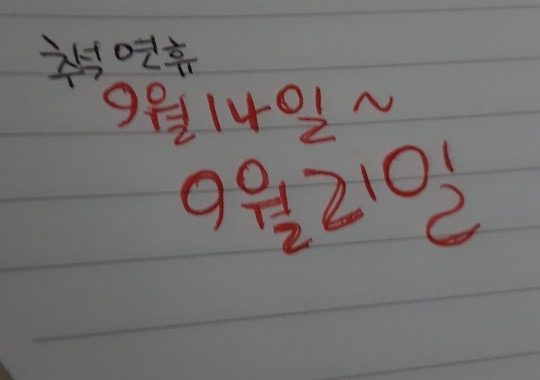 추석 연휴
9월 14일 ~
9월 21일